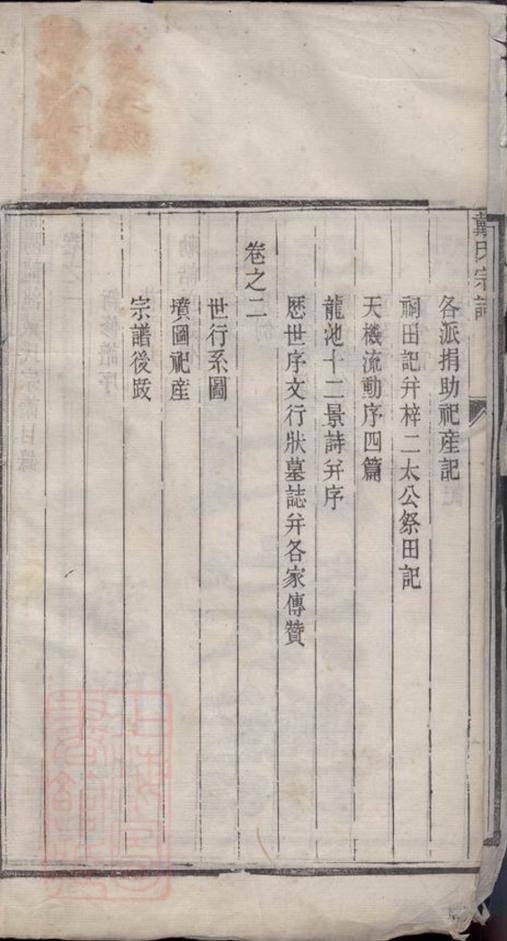 戴氏宗譜
各派捐助祀產記
祠田記幷梓二太公祭田記
天機流動序四篇
龍池十二景詩幷序
歷世序文行狀墓誌幷各家傳贊
卷之二
世行系圖
墳圖祀產
宗譜後跋